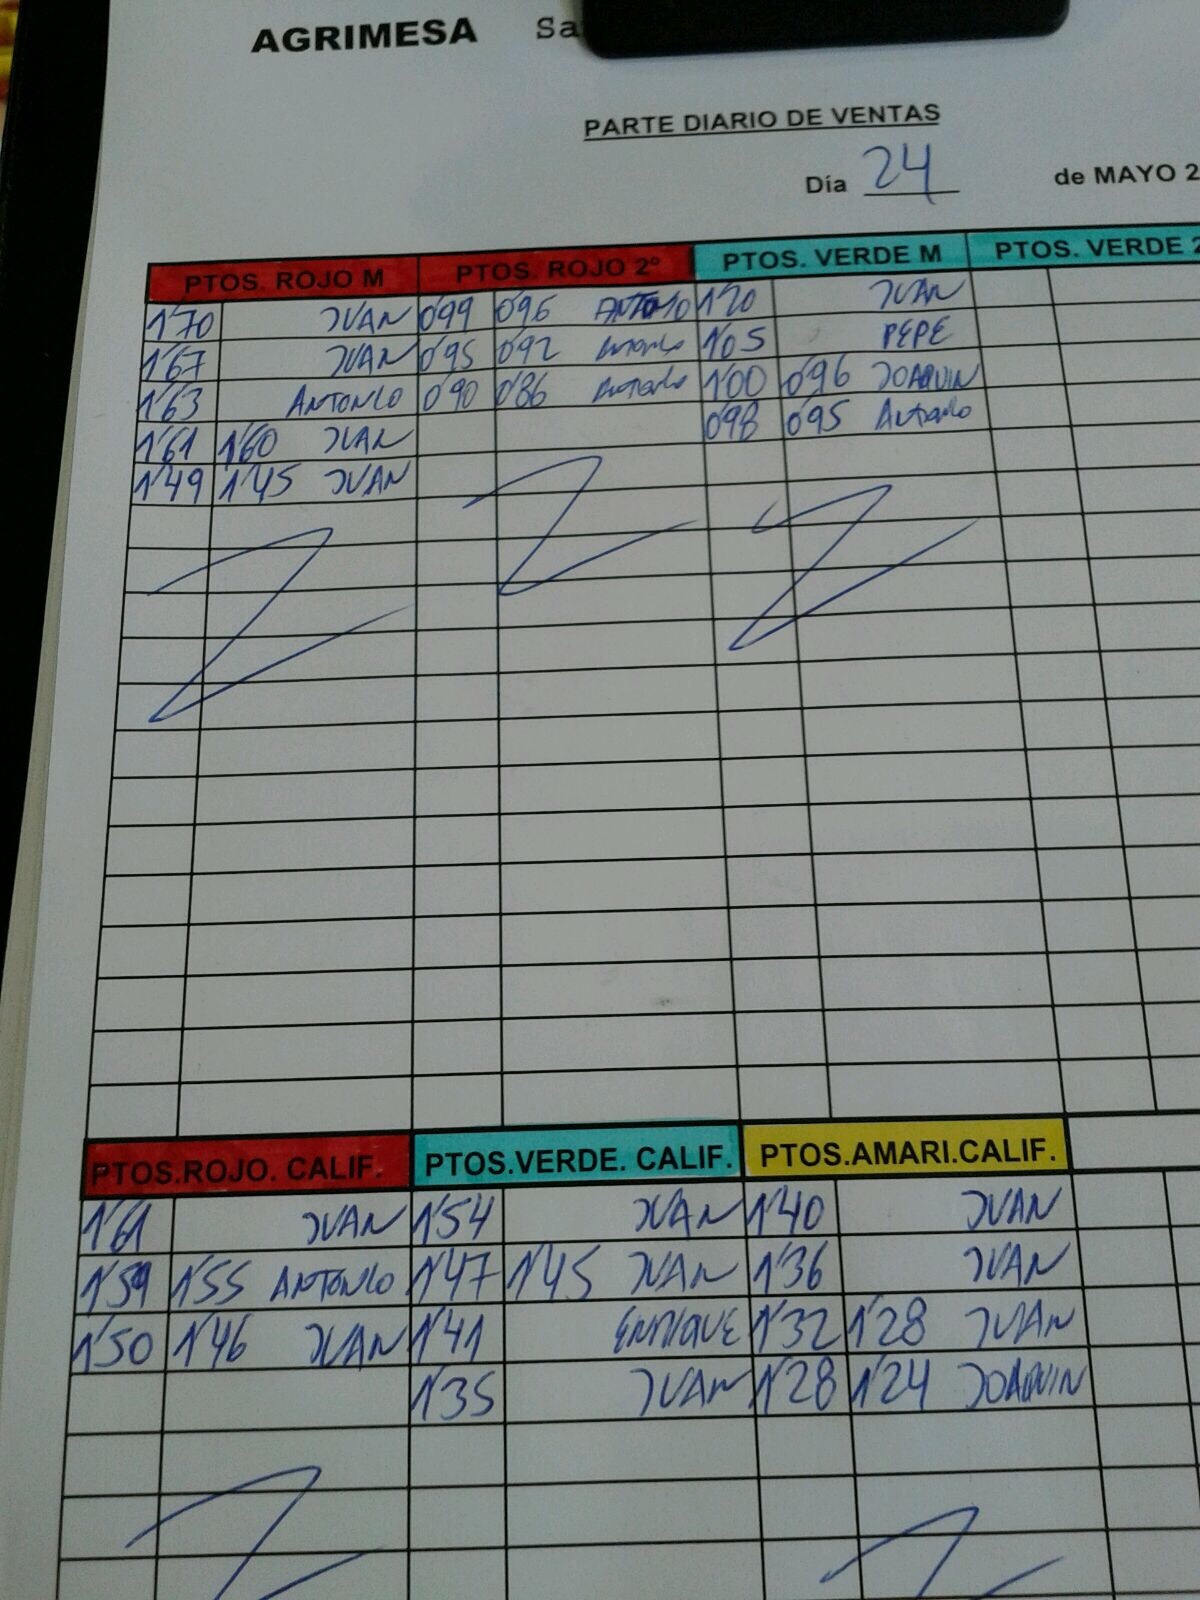 AGRIMESA Sa
PARTE DIARIO DE VENTAS
Día 24 de MAYO 2
PTOS. ROJO M PTOS. ROJO 2º PTOS. VERDE M PTOS. VERDE 2
1'70 JUAN 0'99 0'96 ANTONIO 1'20 JUAN
1'67 JUAN 0'95 0'92 Antonio 1'05 PEPE
1'63 ANTONIO 0'90 0'86 Antonio 1'00 0'96 JOAQUIN
1'61 1'60 JUAN 0'98 0'95 Antonio
1'49 1'45 JUAN
PTOS.ROJO. CALIF. PTOS.VERDE. CALIF. PTOS.AMARI.CALIF.
1'61 JUAN 1'54 JUAN 1'40 JUAN
1'59 1'55 ANTONIO 1'47 1'45 JUAN 1'36 JUAN
1'50 1'46 JUAN 1'41 ENRIQUE 1'32 1'28 JUAN
1'35 JUAN 1'28 1'24 JOAQUIN